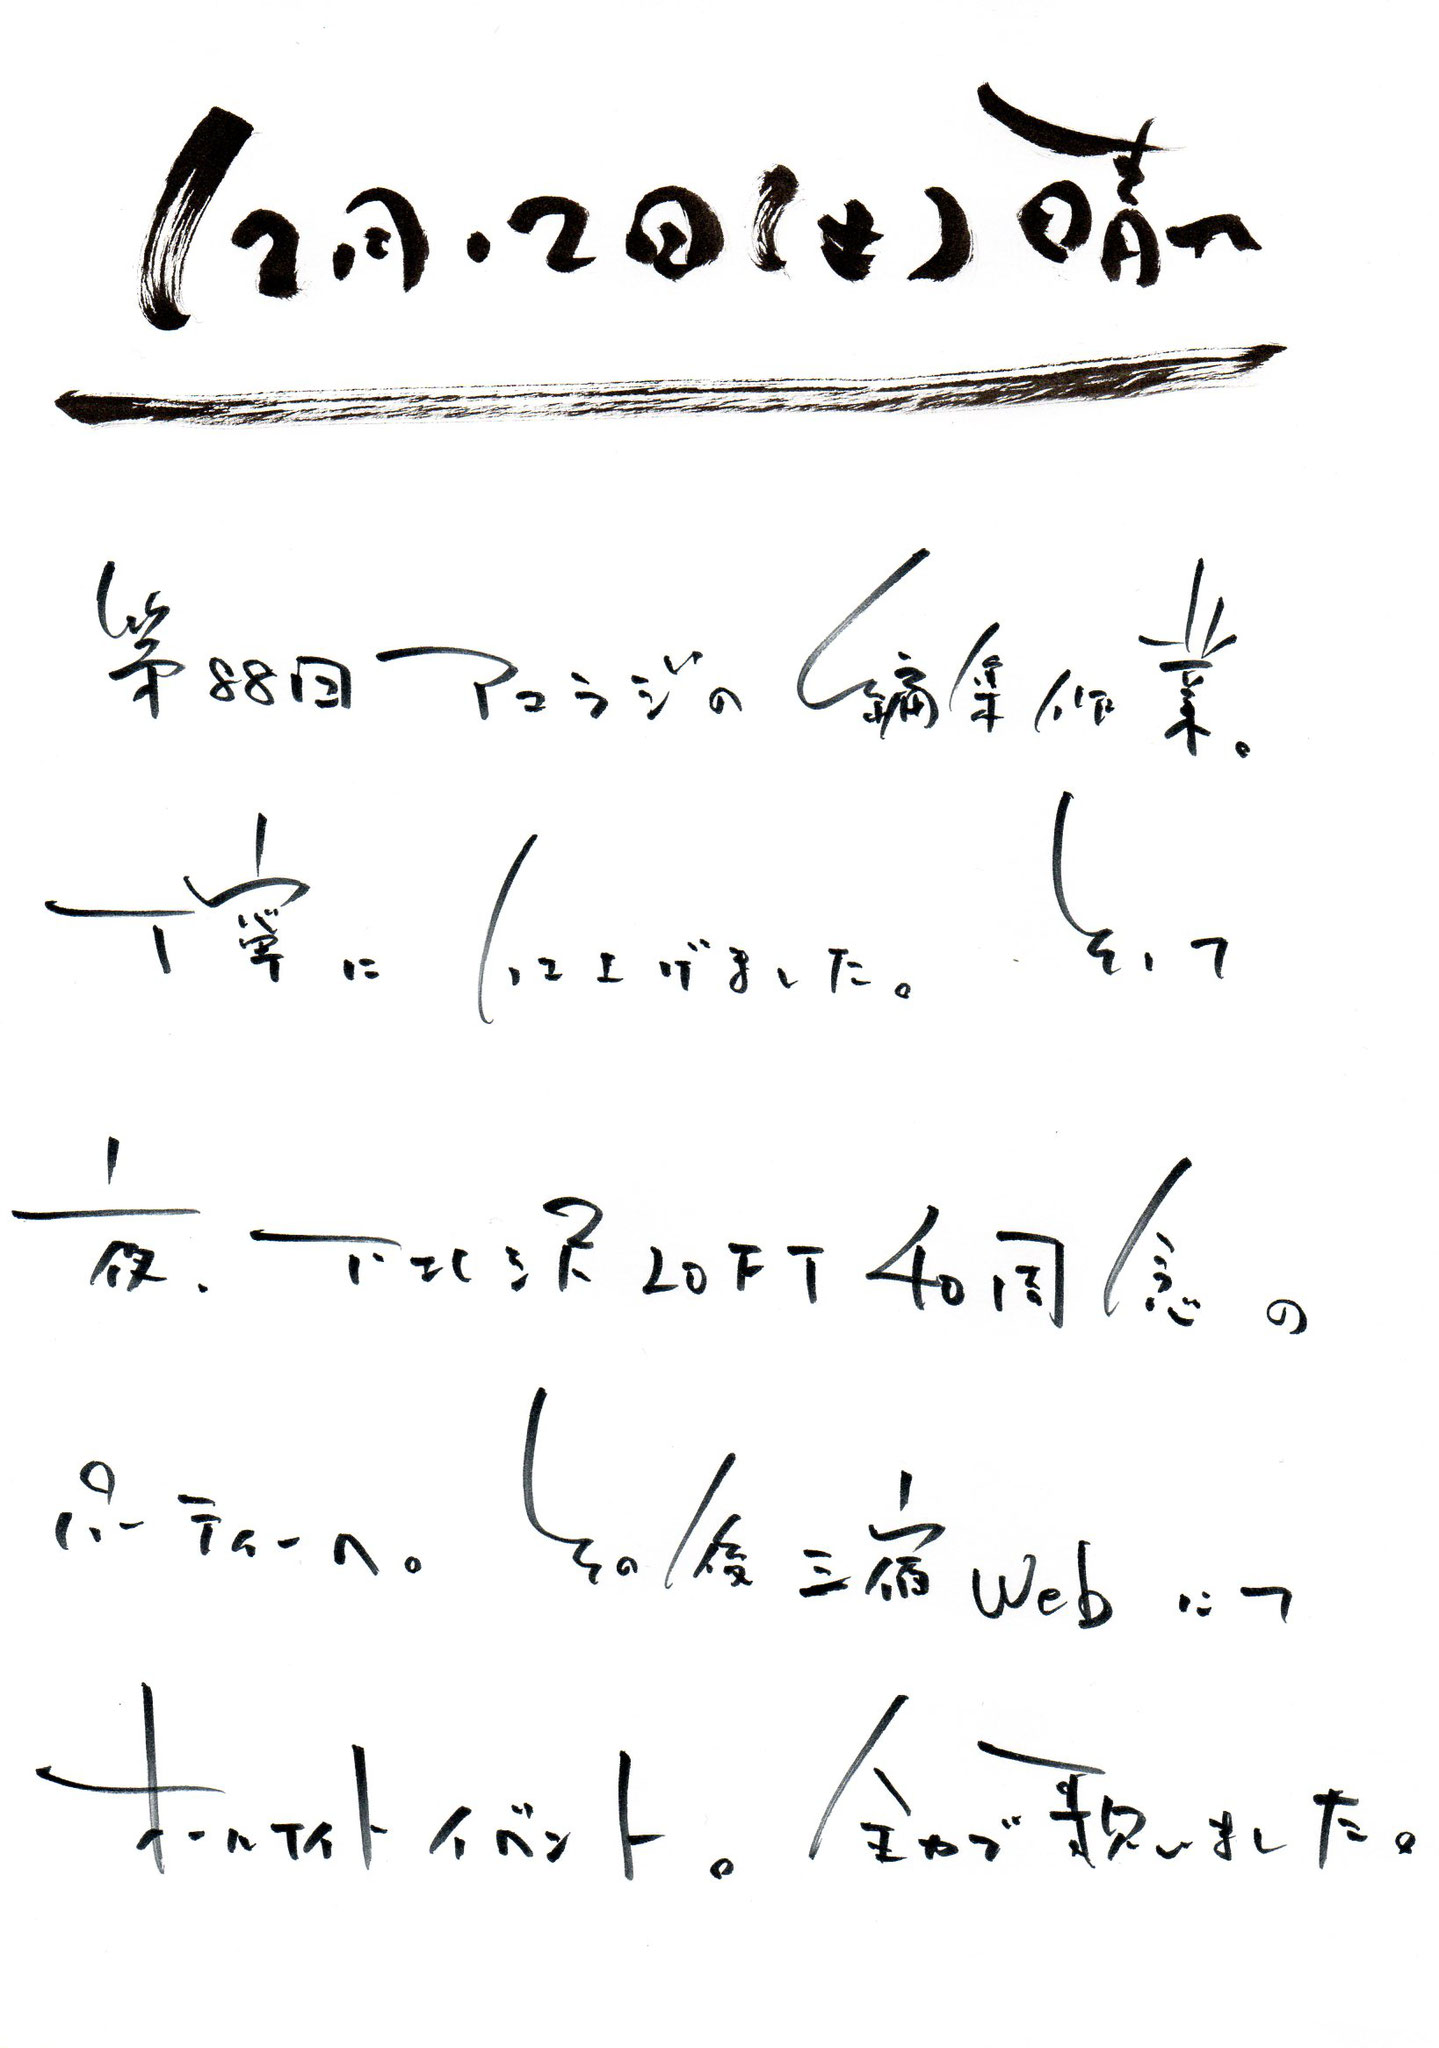 12月.2日(土)晴れ
第88回アコラジの編集作業。
丁寧に仕上げました。そして
夜、下北沢LOFT40周念の
パーティーへ。その後三宿Webにて
オールナイトイベント。全力で歌いました。